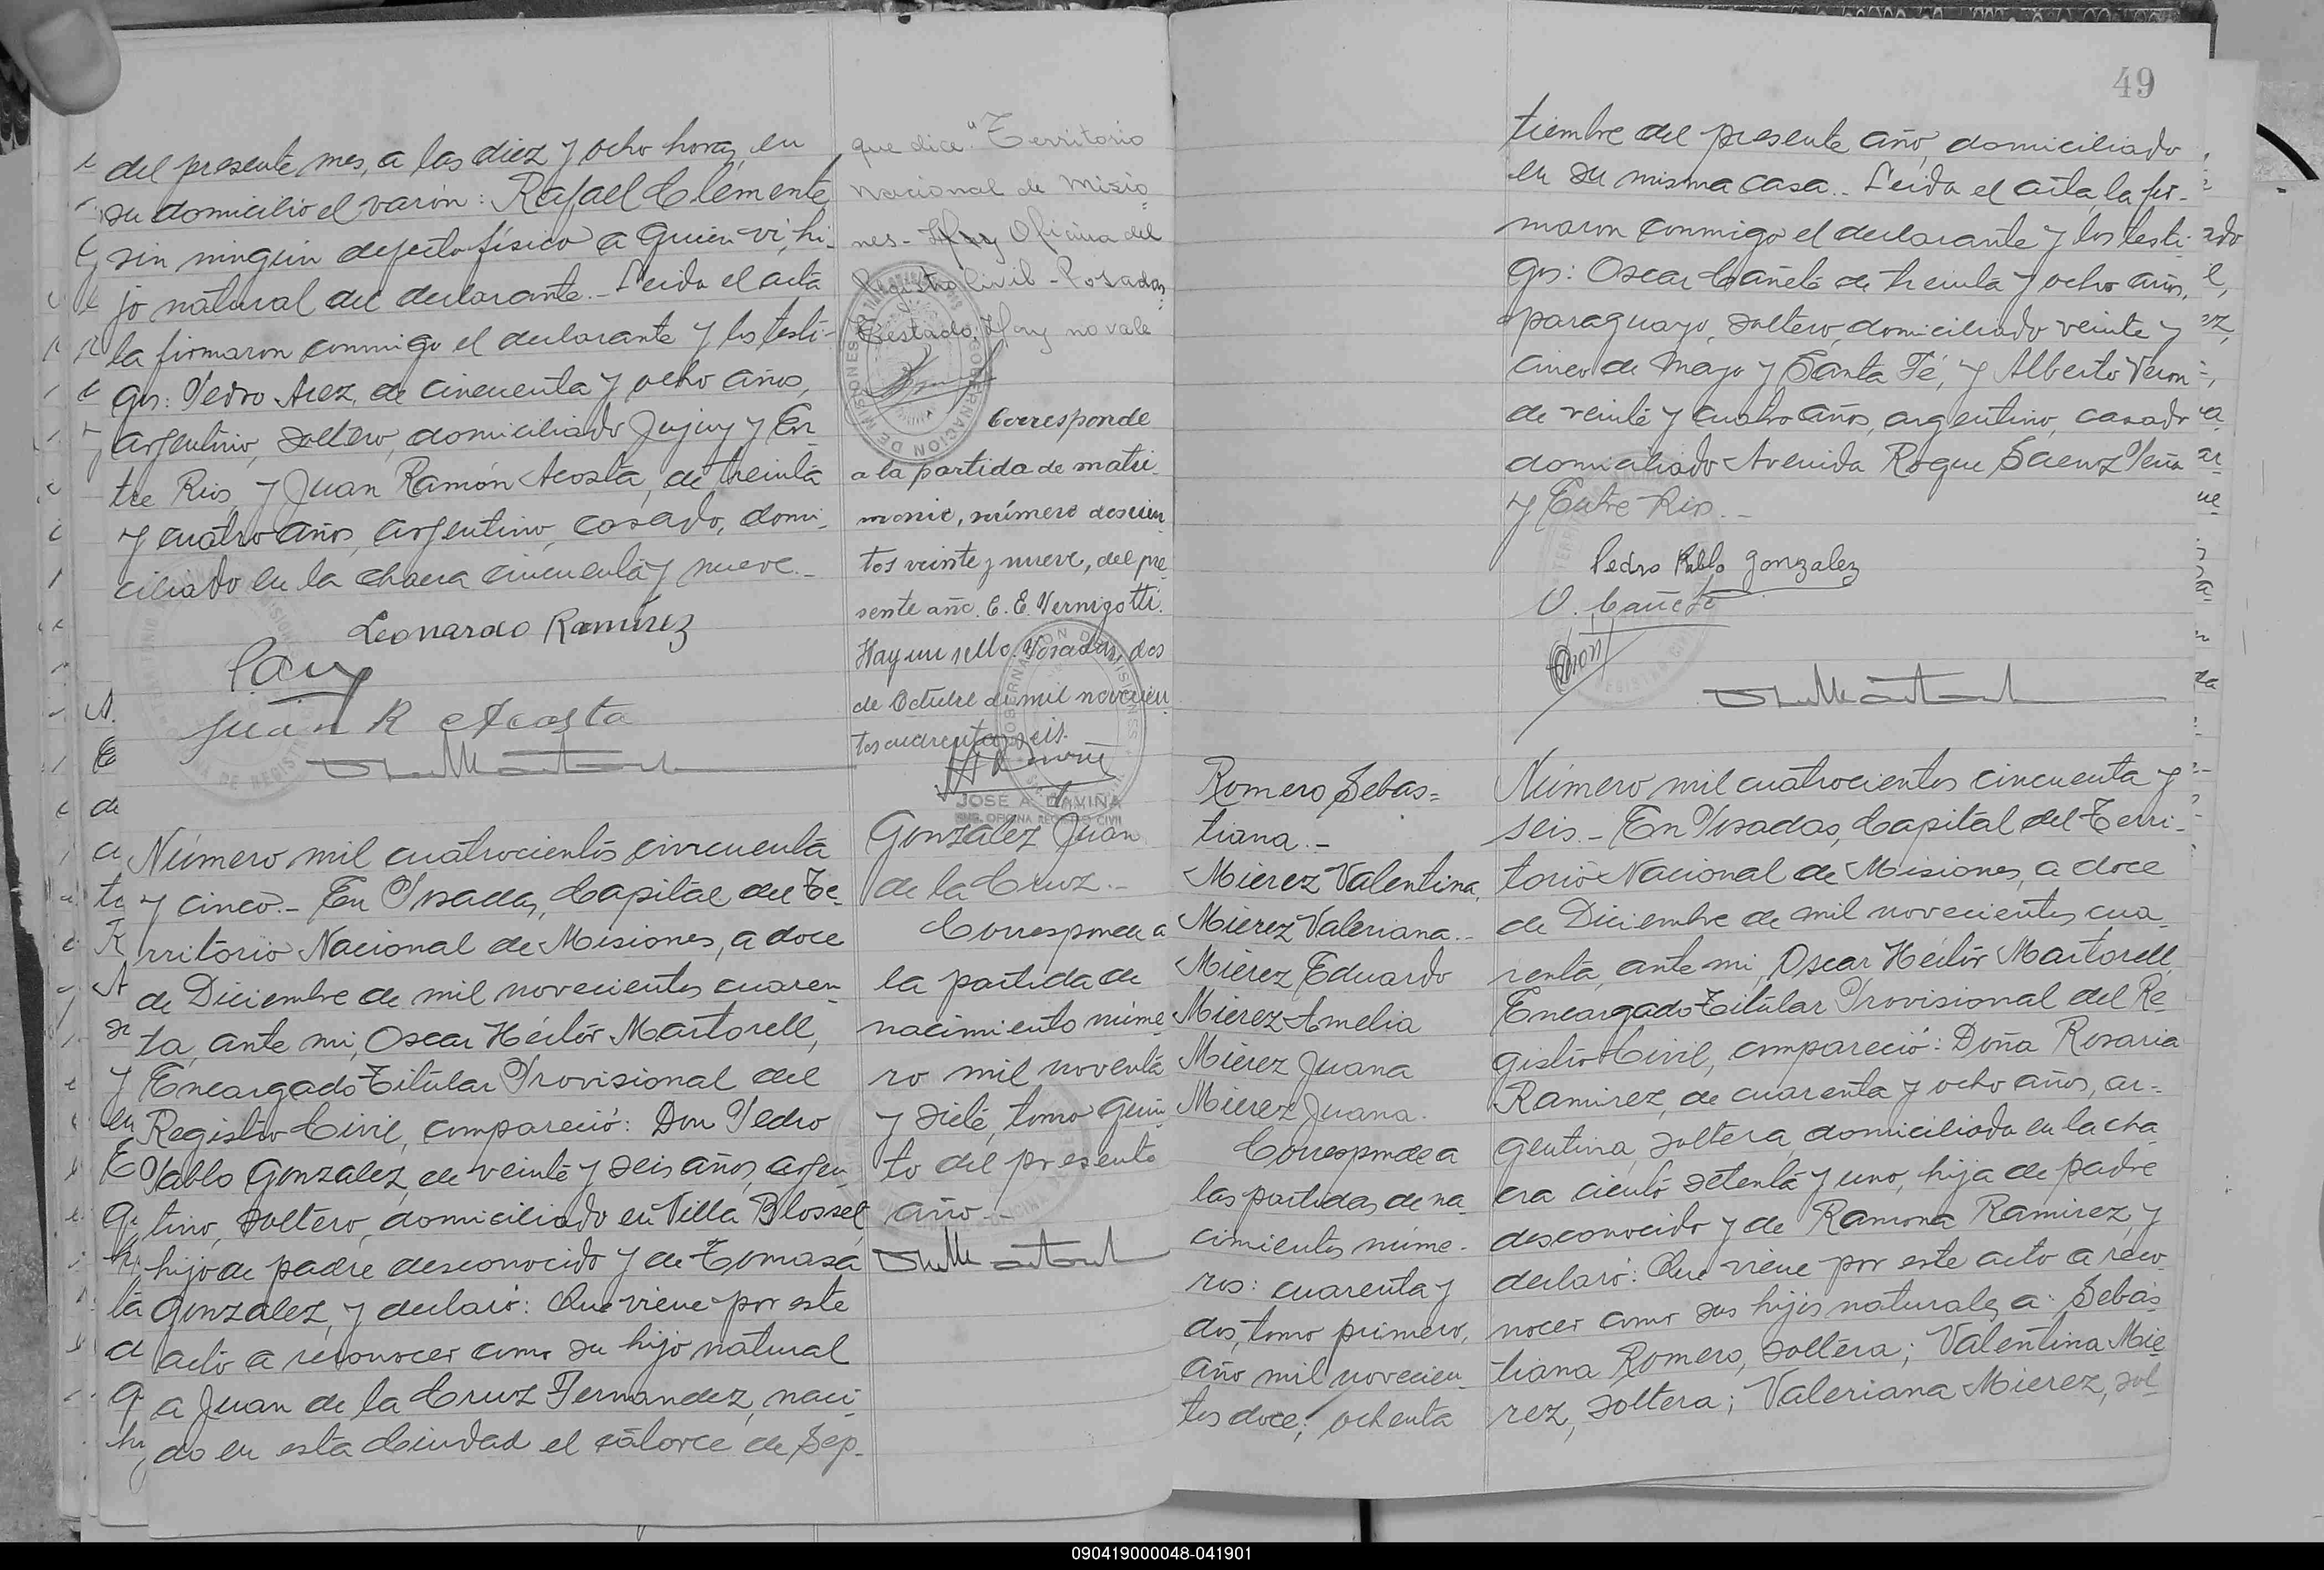 del presente mes, a las diez y ocho horas, en
su domicilio el varón: Rafael Clemente,
sin ningún defecto físico a quien vi, hi-
jo natural del declarante.- Leida el acta
la firmaron conmigo el declarante y los testi-
gos: Pedro Arez, de cincuenta y ocho años,
argentino, soltero, domiciliado Jujuy y En-
tre Rios, y Juan Ramón Acosta, de treinta
y cuatro años, argentino, casado, domi-
ciliado en la chacra cincuenta y nueve.-
Leonardo Ramírez
Juan R Acosta
Número mil cuatrocientos cincuenta
y cinco.- En Posadas, Capital del Te-
rritorio Nacional de Misiones, a doce
de Diciembre de mil novecientos cuaren-
ta, ante mi, Oscar Héctor Martorell,
Encargado Titular Provisional del
Registro Civil, compareció: Don Pedro
Pablo Gonzalez, de veinte y seis años, argen-
tino, soltero, domiciliado en Villa Blosset,
hijo de padre desconocido y de Tomasa
Gonzalez, y declaró: Que viene por este
acto a reconocer como su hijo natural
a Juan de la Cruz Fernandez, naci-
do en esta Ciudad el catorce de Sep-
que dice: "Territorio
Nacional de Misio-
nes- Hay Oficina del
Registro Civil - Posadas
Testado: Hay no vale
Corresponde
a la partida de matri-
monio, número doscien-
tos veinte y nueve, del pre-
sente año. C. E. Vernigotti.
Hay un sello. Posadas, dos
de Octubre de mil novecien-
tos cuarenta y seis.
JOSE A. DAVIÑA
ENC. OFICINA REGISTRO CIVIL
Gonzalez Juan
de la Cruz.-
Corresponde a
la partida de
nacimiento núme-
ro mil noventa
y siete, tomo quin-
to del presente
año.-
49
tiembre del presente año, domiciliado
en su misma casa.- Leida el acta, la fir-
maron conmigo el declarante y los testi-
gos: Oscar Cañete de treinta y ocho años,
paraguayo, soltero, domiciliado veinte y
cinco de Mayo y Santa Fé, y Alberto Veron
de veinte y cuatro años, argentino, casado
domiciliado Avenida Roque Saenz Peña
y Entre Rios.-
Pedro Pablo Gonzalez
O. Cañete
Romero Sebas=
tiana.-
Mierez Valentina.
Mierez Valeriana.-
Mierez Eduardo
Mierez Amelia
Mierez Juana
Mierez Juana.
Corresponde a
las partidas de na-
cimientos núme-
ros: cuarenta y
dos, tomo primero,
año mil novecien-
tos doce; ochenta
Número mil cuatrocientos cincuenta y
seis.- En Posadas, Capital del Terri-
torio Nacional de Misiones, a doce
de Diciembre de mil novecientos cua-
renta, ante mi, Oscar Héctor Martorell,
Encargado Titular Provisional del Re-
gistro Civil, compareció: Doña Rosaria
Ramirez, de cuarenta y ocho años, ar-
gentina, soltera, domiciliada en la cha-
cra ciento setenta y uno, hija de padre
desconocido y de Ramona Ramirez, y
declaró: Que viene por este acto a reco-
nocer como sus hijos naturales a: Sebas-
tiana Romero, soltera; Valentina Mie-
rez, soltera; Valeriana Mierez, sol-
090419000048-041901